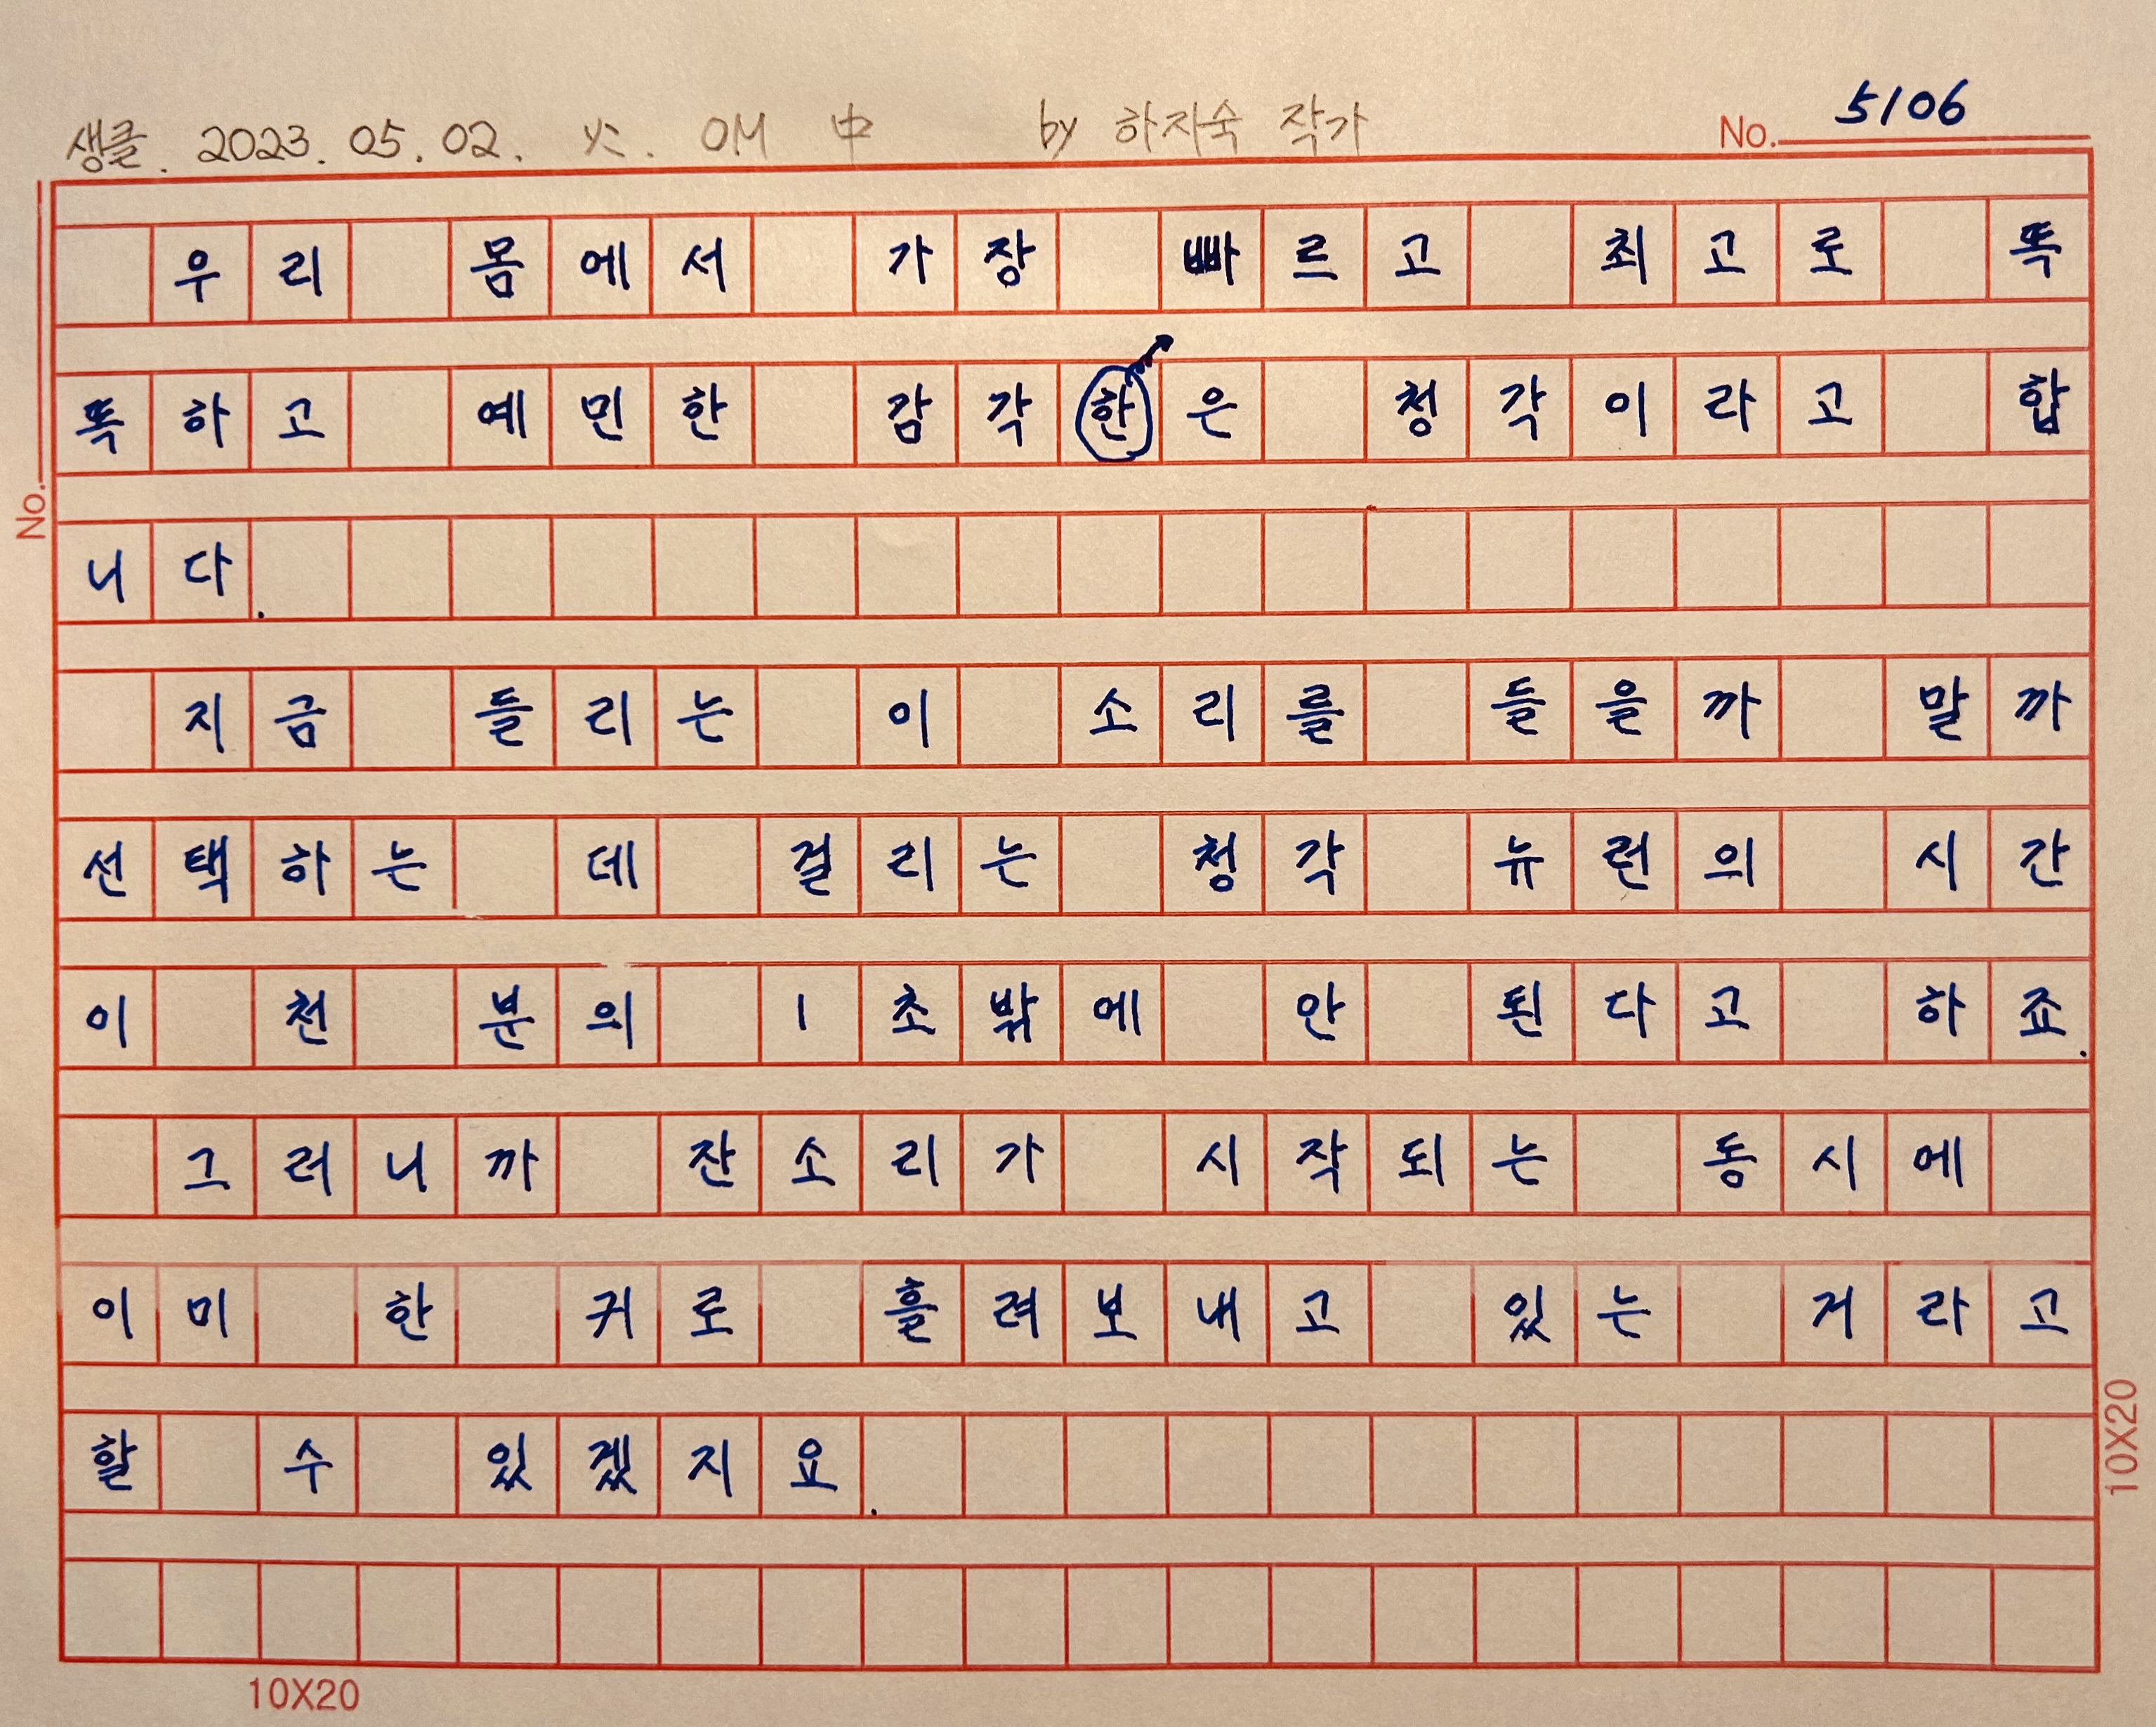 생클. 2023. 05. 02. 火. OM 中 by 하자숙 작가
No. 5106
우리 몸에서 가장 빠르고 최고로 똑
똑하고 예민한 감각한은 청각이라고 합
니다.
지금 들리는 이 소리를 들을까 말까
선택하는 데 걸리는 청각 뉴런의 시간
이 천 분의 1초밖에 안 된다고 하죠.
그러니까 잔소리가 시작되는 동시에
이미 한 귀로 흘려보내고 있는 거라고
할 수 있겠지요.
No.
10X20
10X20